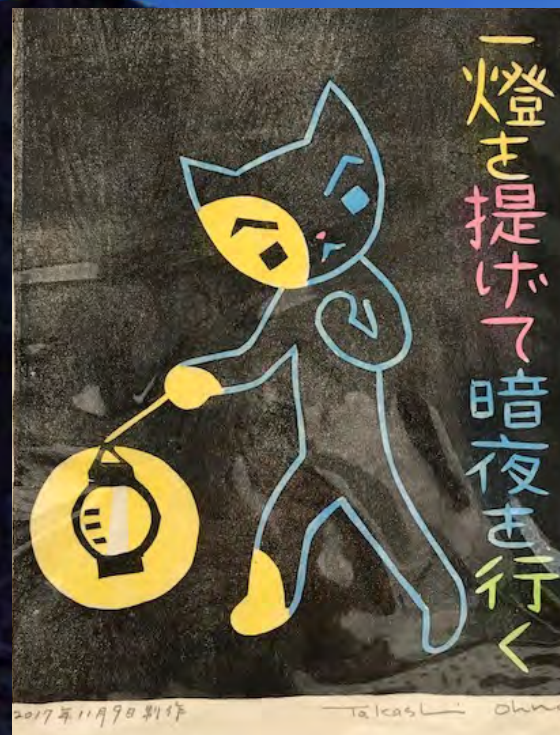 一燈を提げて暗夜を行く
2017年11月9日制作
Takashi Ohno